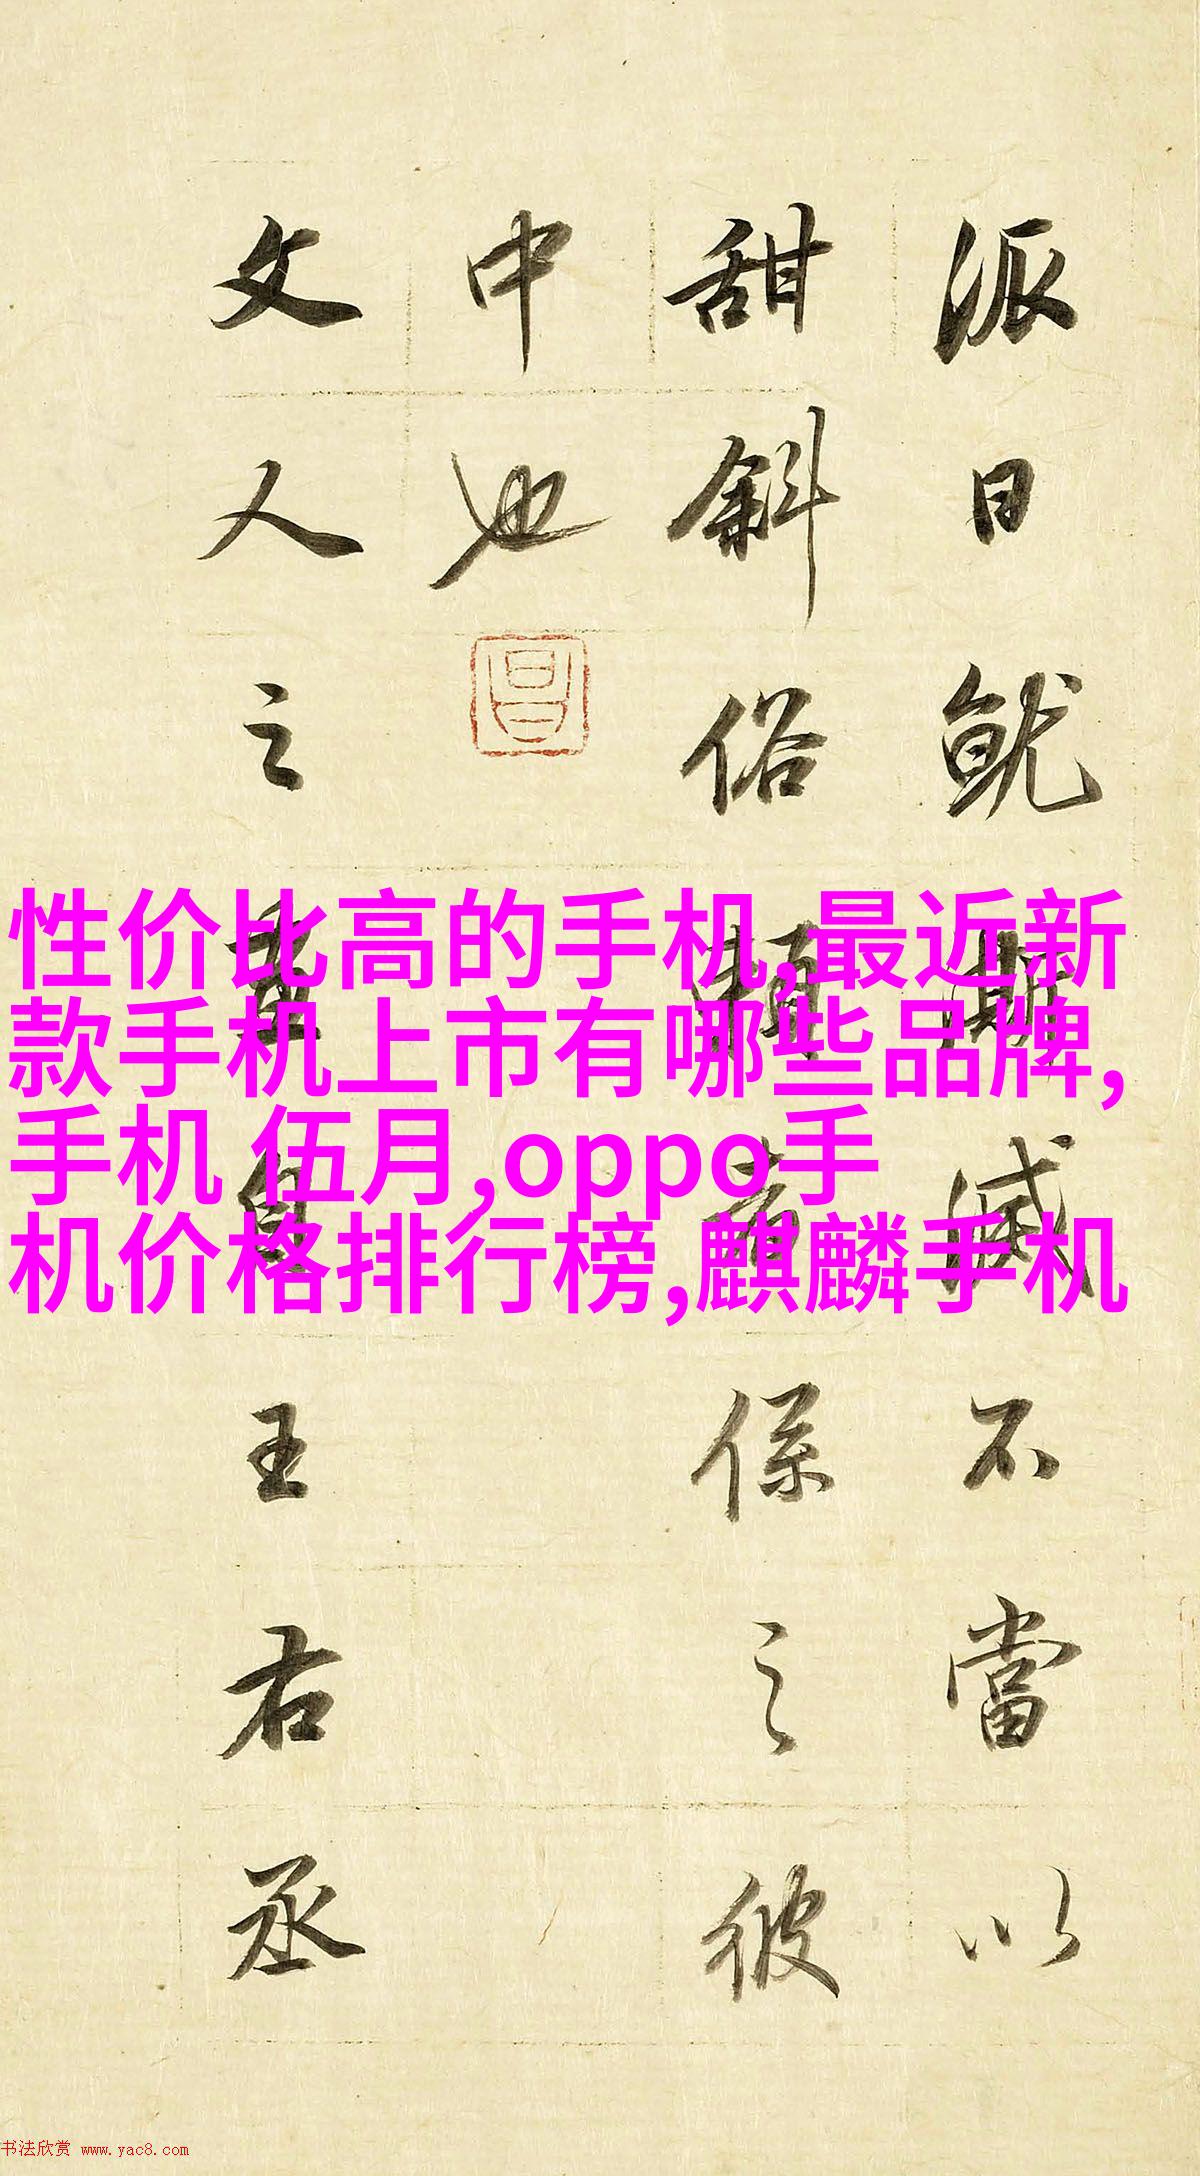 派日就澌滅不當以
甜斜俗賴者係之彼
中也
昌
文人之畫自王右丞
性价比高的手机,最近新
款手机上市有哪些品牌,
手机 伍月,oppo手
机价格排行榜,麒麟手机
书法欣赏 www.yac8.com